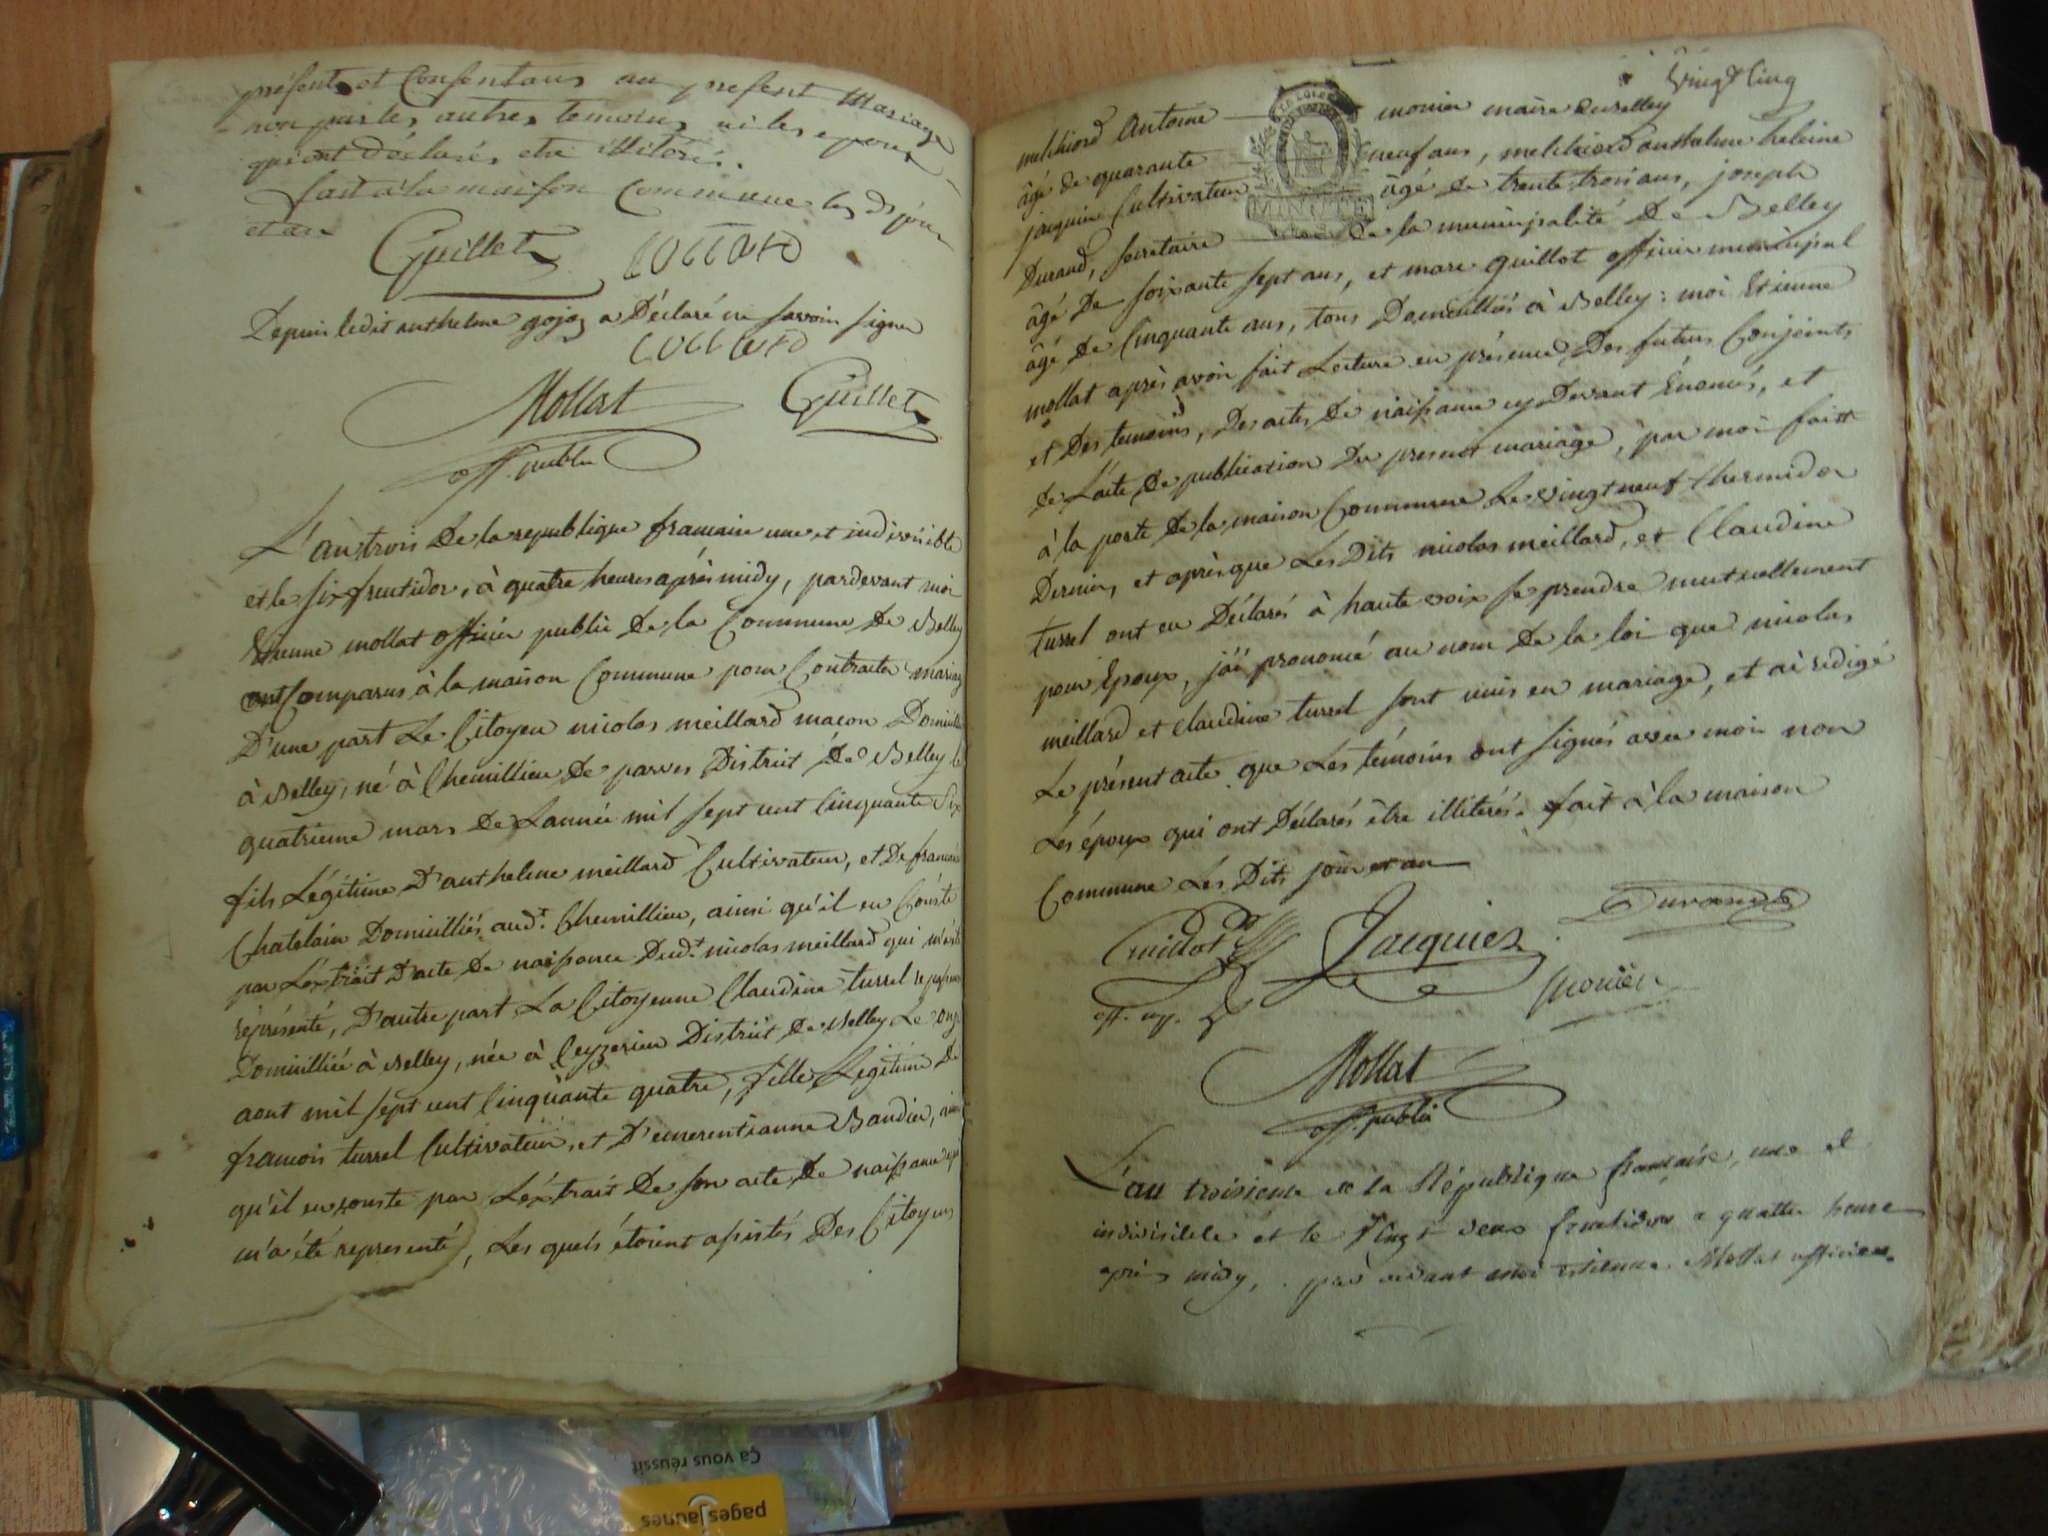 présents et Consentans au present Mariage
non par les autres temoins ni les epoux
qui ont déclarés etre illiterés.
fait à la maison Commune les ds jour
et an
Guillet
Depuis ledit anthelme gojoz a Déclaré ne savoir signer
Mollat Guillet
off. public
L'an trois De la republique francaise une et indivisible
et le six fructidor, à quatre heures aprés midy, pardevant moi
Etienne mollat officier public De la Commune De Belley
ont Comparus à la maison Commune pour Contracter mariag
D'une part Le Citoyen nicolas meillard macon Domicilié
à Belley, né à Chemillieu De parves District De Belley le
quatrieme mars De Lannée mil sept cent Cinquante Six
fils Légitime D'anthelme meillard Cultivateur, et De francoise
Chatelain Domiciliés aud.t Chemillieu, ainsi qu'il en Conste
par L'extrait D'acte De naissance Dud.t nicolas meillard qui m'a été
représenté, D'autre part La Citoyenne Claudine turrel
Domiciliée à Belley, née à Ceyzerieu District De Belley Le onze
aout mil sept cent Cinquante quatre, fille Légitime De
francois turrel Cultivateur, et D'emerentianne Baudin, ainsi
qu'il en conste par L'extrait De son acte De naissance qui
m'a été representé, Les quels étoient assistés Des Citoyens
Vingt Cinq
melchiord Antoine monier maire de Belley
âgé de quarante neuf ans, melchiord anthelme heleine
jacquier Cultivateur âgé de trente trois ans, joseph
MINUTE
Durand, secretaire De la municipalité De Belley
âgé De soixante sept ans, et marc guillot officier municipal
âgé De Cinquante ans, tous Domiciliés à Belley : moi Etienne
mollat après avoir fait Lecture en présence Des futurs Conjoints
et Des temoins, Des actes De naissance cy Devant Enoncés, et
de L'acte De publication Du present mariage, par moi faitte
à la porte De la maison Commune Le vingt neuf thermidor
Dernier, et après que Les Dits nicolas meillard, et Claudine
turrel ont eu Déclarés à haute voix se prendre mutuellement
pour Epoux, j'ai prononcé au nom De la loi que nicolas
meillard et claudine turrel sont unis en mariage, et ai redigé
Le présent acte que Les témoins ont signés avec moi non
Les époux qui ont Déclarés être illitérés. fait à la maison
Commune Les Dits jour et an
Guillot Jacquier Durand
off. mp. Monier
Mollat
off. public
L'an troisieme de la République française, une et
indivisible et le Vingt deux fructidor a quatre heure
après midy, par devant moi etienne Mollat officier
Ça vous réussit
pagesJaunes